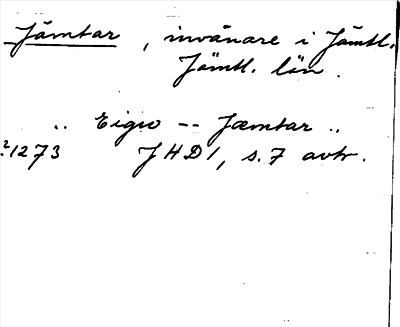 Jämtar, invånare i Jämtl.
Jämtl. län.
.. Eigio -- Jæmtar ..
?1273 JHD 1, s. 7 avtr.